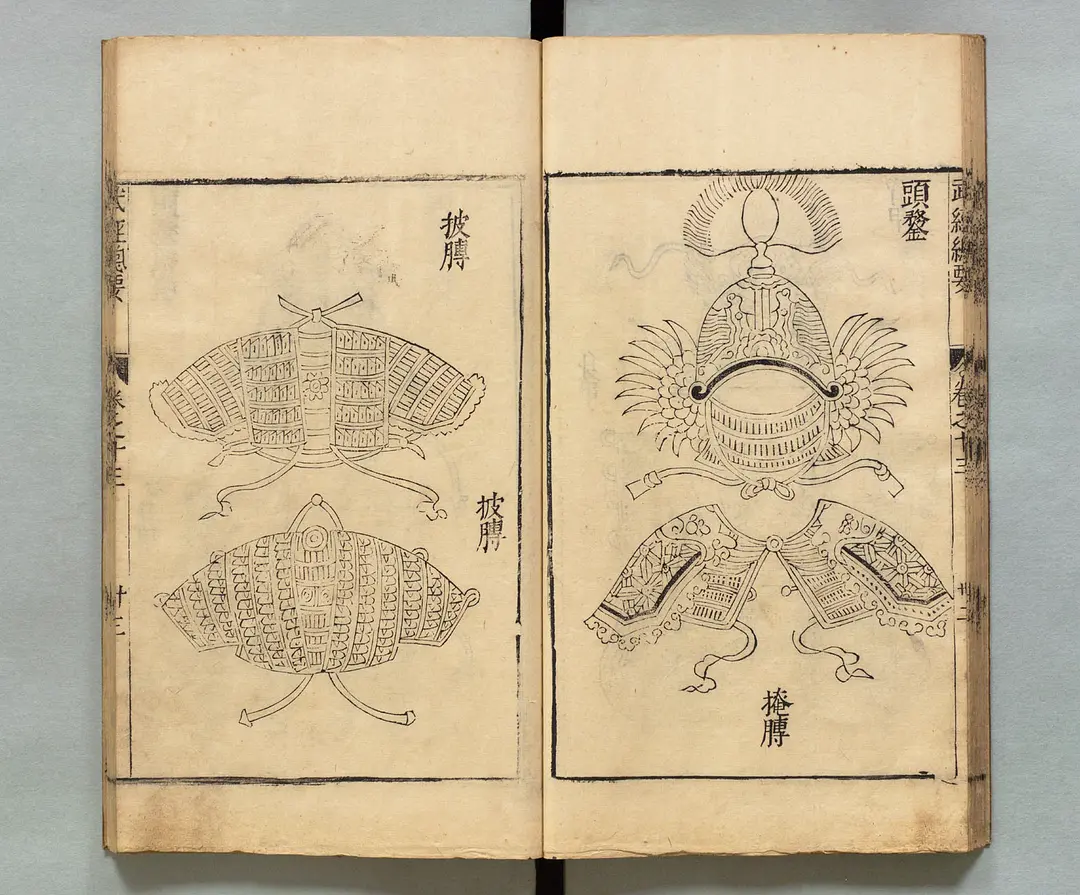 武經總要
卷之十三
頭鍪
掩膊
披膊
披膊
武經總要
卷之十三